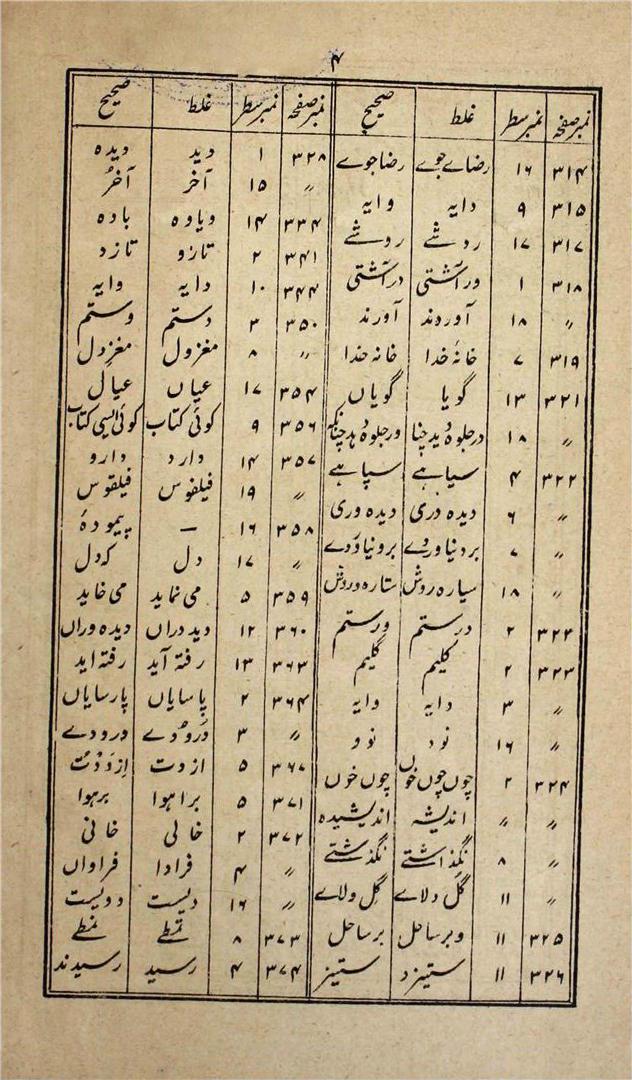 ۴
نمبر صفحہ نمبر سطر غلط صحیح نمبر صفحہ نمبر سطر غلط صحیح
۳۱۴ ۱۶ رضاے جوے رضا جوے ۳۲۸ ۱ دید دیدہ
۳۱۵ ۹ دایہ وایہ 〃 ۱۵ آخر آخرُ
۳۱۷ ۱۷ ردشے روشے ۳۳۴ ۱۴ ویاوہ بادہ
۳۱۸ ۱ ور آشتی در آشتی ۳۴۱ ۲ تازو تازد
〃 ۱۸ آوروند آورند ۳۴۴ ۱۰ دایہ وایہ
۳۱۹ ۷ خانۂ خدا خانہ خدا ۳۵۰ ۳ دستم وستم
۳۲۱ ۱۳ گویا گویاں 〃 ۸ مغزول مغزدل
〃 ۱۸ ۳۵۴ ۱۷ عیاں عیال
۳۲۲ ۴ سیاہے سپاہے ۳۵۶ ۹ کوئی کتاب کوئی ایسی کتاب
〃 ۶ دیدہ دری دیدہ وری ۳۵۷ ۱۴ دارد دارو
〃 ۷ ۱۹ فیلفوس فیلقوس
〃 ۱۸ سیارہ روش ستارہ روش ۳۵۸ ۱۶ — پیمودہٗ
۳۲۲ ۲ درستم ورستم 〃 ۱۷ دل کہ دل
۳۲۳ ۲ کلیم گلیم ۳۵۹ ۵ می نماید می خاید
〃 ۳ دایہ وایہ ۳۶۰ ۱۲ دیدداں دیدہ وراں
〃 ۱۶ نود نوو ۳۶۳ ۱۳ رفتہ آید رفتہ اید
۳۲۴ ۲ چوں چوں خوں چوں خوں ۳۶۴ ۲ پاسایاں پارسایاں
〃 〃 اندیشہ اندیشیدہ 〃 ۳ دَرودے ورودے
〃 ۸ نگذاشتے نگذشتے ۳۶۷ ۵ ازوت
〃 ۱۱ گل دلاے گِل ولاے ۳۷۱ ۵ براہوا برہوا
۳۲۵ ۱۱ وبرساحل برساحل ۳۷۲ ۲ خالی خانی
۳۲۶ ۱۱ ستیزد ستیز 〃 ۴ فرادا فراواں
〃 ۱۶ دیست دویست
۳۷۳ ۸ نمطے
۳۷۴ ۴ رسید رسیدند